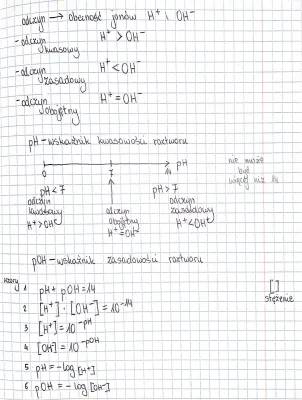 odczyn → obecność jonów H⁺ i OH⁻
- odczyn kwasowy H⁺ > OH⁻
- odczyn zasadowy H⁺ < OH⁻
- odczyn obojętny H⁺ = OH⁻
pH - wskaźnik kwasowości roztworu
0 7 14 pH
nie może być więcej niż 14
pH < 7 pH > 7
odczyn kwasowy H⁺ > OH⁻
odczyn obojętny H⁺ = OH⁻
odczyn zasadowy H⁺ < OH⁻
pOH - wskaźnik zasadowości roztworu
wzory
1 pH + pOH = 14
[ ] stężenie
2 [H⁺] · [OH⁻] = 10⁻¹⁴
3 [H⁺] = 10^-pH
4 [OH] = 10^-pOH
5 pH = -log [H⁺]
6 pOH = -log [OH⁻]